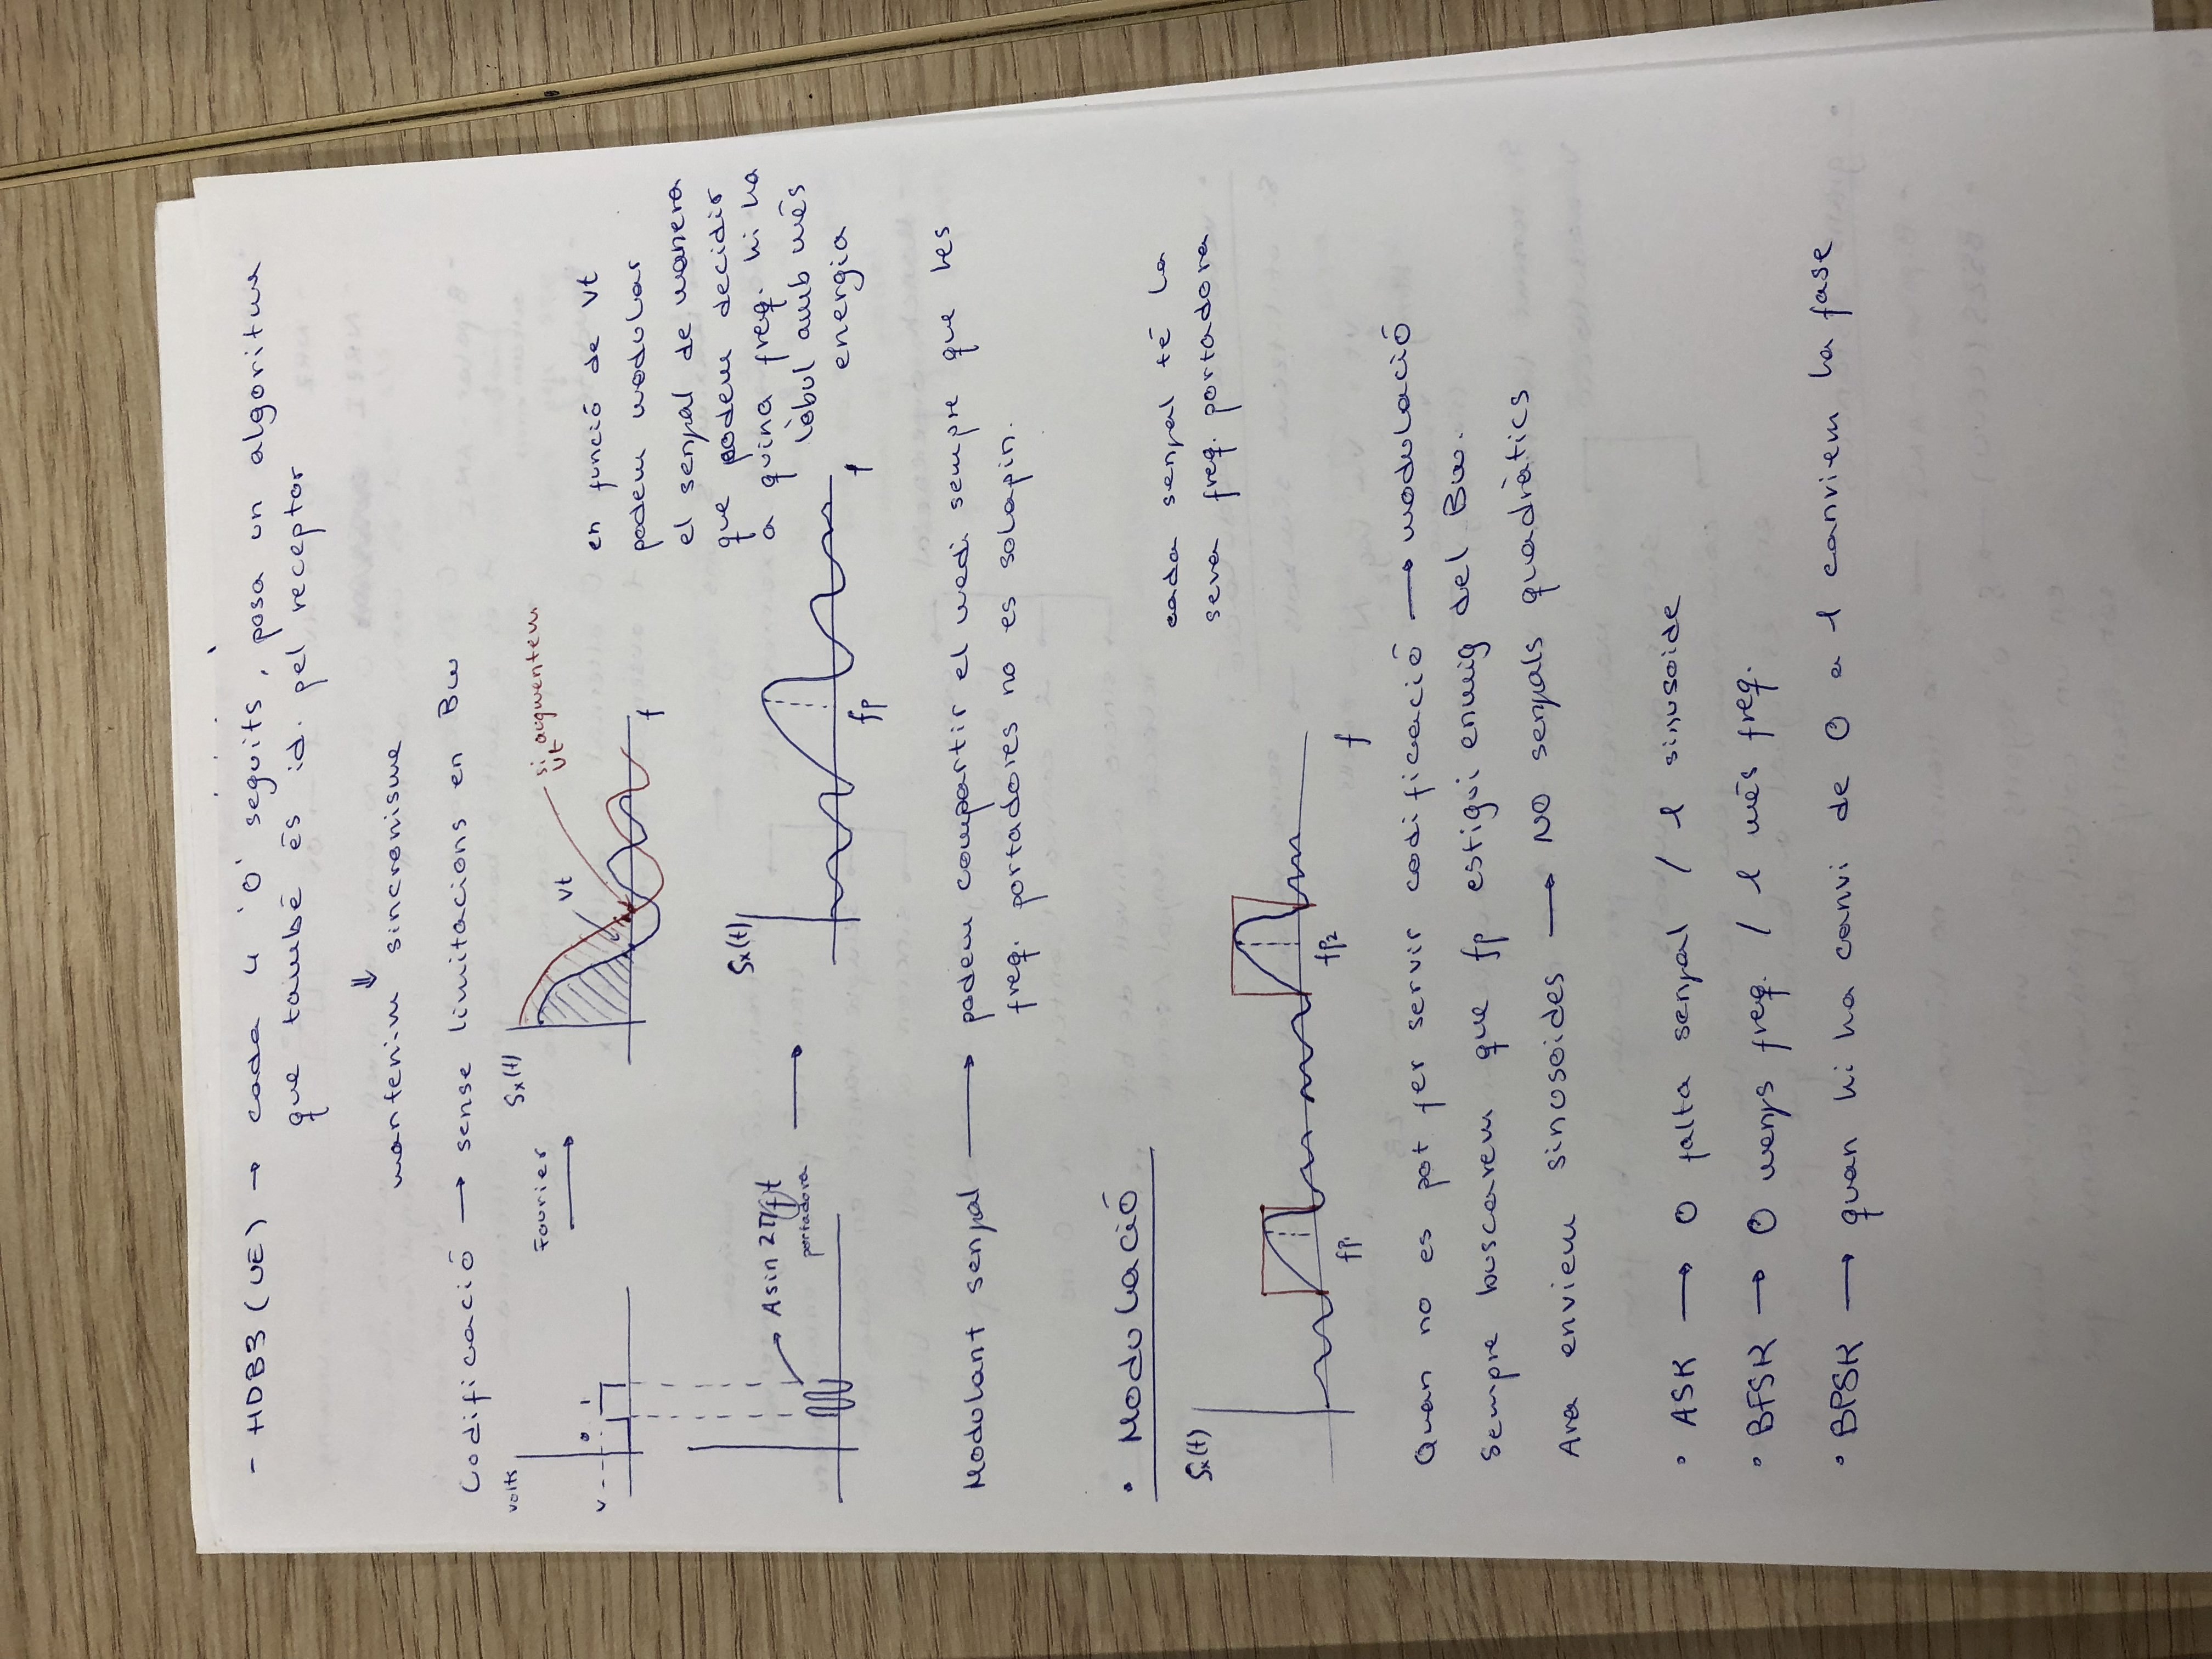 - HDB3 (UE) → cada 4 '0' seguits, posa un algoritme
que també és id. pel receptor
⇓
mantenim sincronisme
Codificació → sense limitacions en Bw
volts
Fourier
Sx(t)
si augmentem
vt
vt
0 1
v
f
en funció de vt
podem modular
el senyal de manera
que podem decidir
a quina freq. hi ha
lòbul amb més
energia
A sin 2πft
portadora
Sx(t)
fp
f
Modulant senyal → podem compartir el medi sempre que les
freq. portadores no es solapin.
• Modulació
Sx(t)
cada senyal té la
seva freq. portadora
fp1
fp2
f
Quan no es pot fer servir codificació → modulació
Sempre buscarem que fp estigui enmig del Bw.
Ara enviem sinusoides → NO senyals quadràtics
• ASK → 0 falta senyal / 1 sinusoide
• BFSK → 0 menys freq. / 1 més freq.
• BPSK → quan hi ha canvi de 0 a 1 canviem la fase